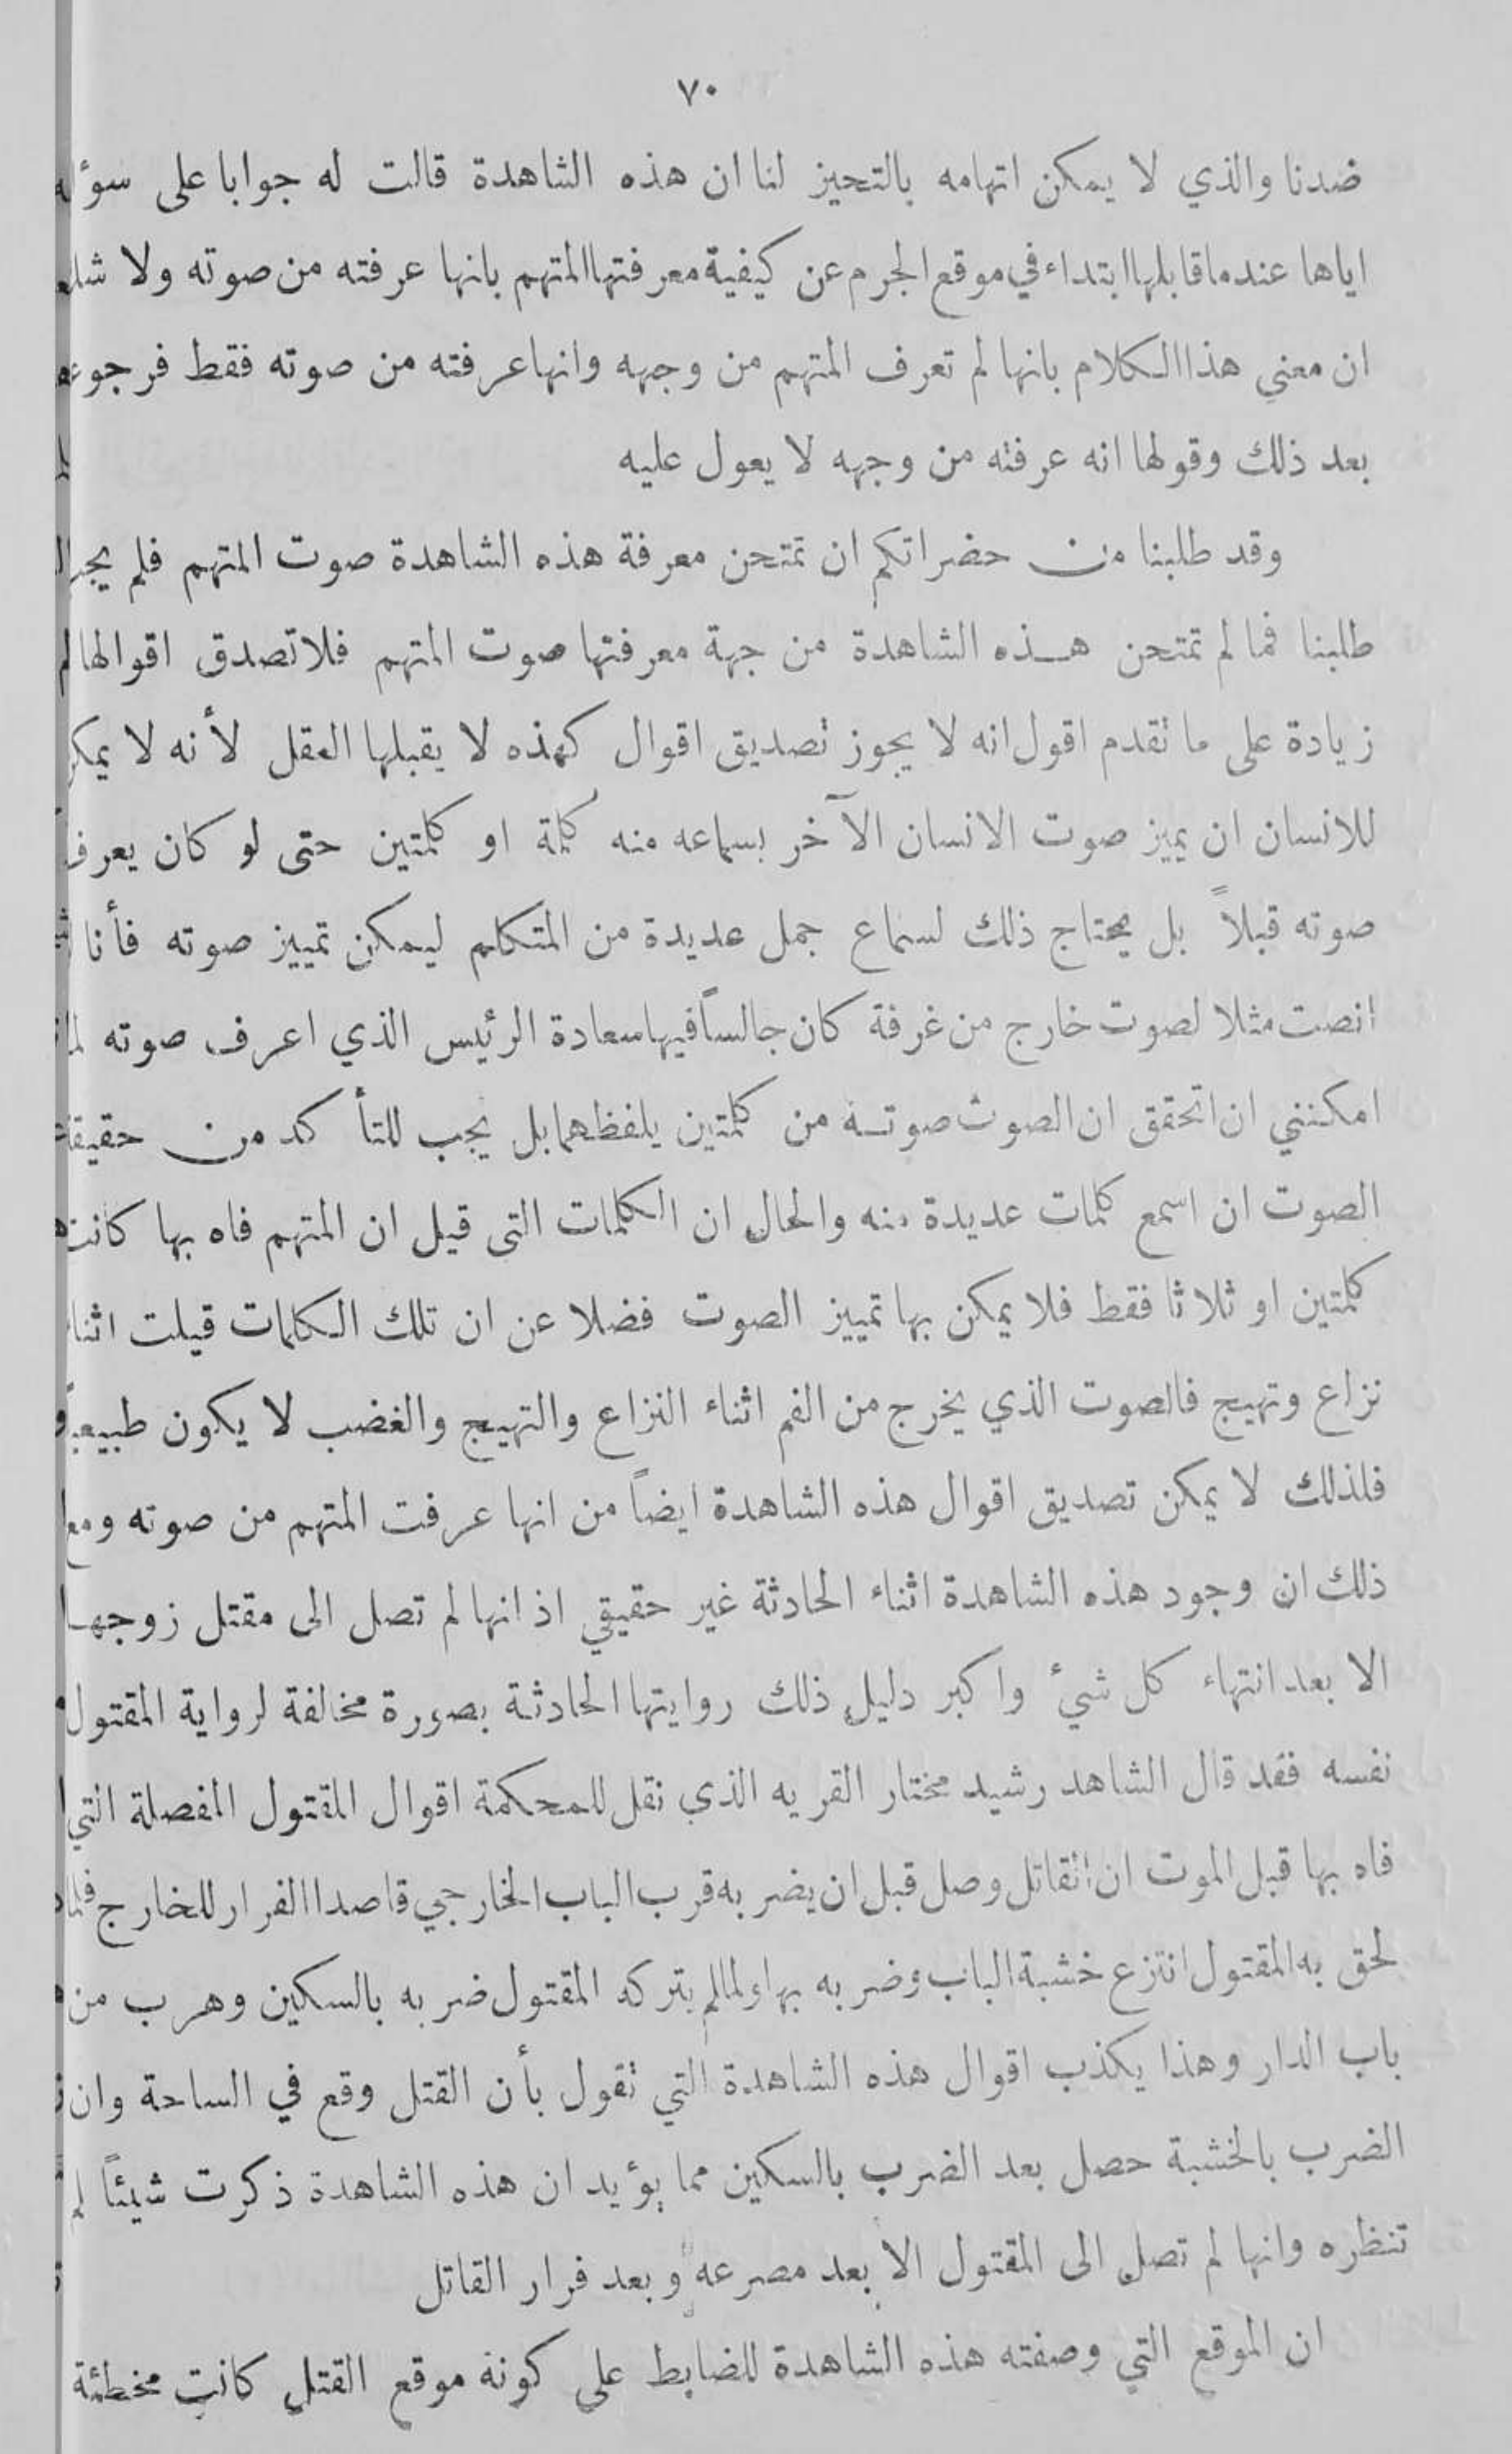 ٧٠
ضدنا والذي لا يمكن اتهامه بالتحيز لنا ان هذه الشاهدة قالت له جوابا على سوء له
اياها عندما قابلها ابتداء في موقع الجرم عن كيفية معرفتها المتهم بانها عرفته من صوته ولا
ان معنى هذا الكلام بانها لم تعرف المتهم من وجهه وانها عرفته من صوته فقط
بعد ذلك وقولها انه عرفته من وجهه لا يعول عليه
وقد طلبنا من حضراتكم ان تمتحن معرفة هذه الشاهدة صوت المتهم فلم
طلبنا فما لم تمتحن هذه الشاهدة من جهة معرفتها صوت المتهم فلا تصدق اقوالها
زيادة على ما تقدم اقول انه لا يجوز تصديق اقوال كهذه لا يقبلها العقل لأنه لا يمكن
للانسان ان يميز صوت الانسان الآخر بسماعه منه كلمة او كلمتين حتى لو كان يعرف
صوته قبلاً بل يحتاج ذلك لسماع جمل عديدة من المتكلم ليمكن تمييز صوته فأنا
انصت مثلا لصوت خارج من غرفة كان جالساً فيها سعادة الرئيس الذي اعرف صوته لما
امكنني ان اتحقق ان الصوت صوته من كلمتين يلفظهما بل يجب للتأكد من حقيقة
الصوت ان اسمع كلمات عديدة منه والحال ان الكلمات التى قيل ان المتهم فاه بها كانت
كلمتين او ثلاثا فقط فلا يمكن بها تمييز الصوت فضلا عن ان تلك الكلمات قيلت اثناء
نزاع وتهيج فالصوت الذي يخرج من الفم اثناء النزاع والتهيج والغضب لا يكون طبيعياً
فلذلك لا يمكن تصديق اقوال هذه الشاهدة ايضاً من انها عرفت المتهم من صوته ومع
ذلك ان وجود هذه الشاهدة اثناء الحادثة غير حقيقي اذ انها لم تصل الى مقتل زوجها
الا بعد انتهاء كل شيء واكبر دليل ذلك روايتها الحادثة بصورة مخالفة لرواية المقتول
نفسه فقد قال الشاهد رشيد مختار القريه الذي نقل للمحكمة اقوال المقتول المفصلة التي
فاه بها قبل الموت ان القاتل وصل قبل ان يضربه قرب الباب الخارجي قاصدا الفرار للخارج فلما
لحق به المقتول انتزع خشبة الباب وضربه بها ولما لم يتركه المقتول ضربه بالسكين وهرب من
باب الدار وهذا يكذب اقوال هذه الشاهدة التي تقول بأن القتل وقع في الساحة وان
الضرب بالخشبة حصل بعد الضرب بالسكين مما يؤيد ان هذه الشاهدة ذكرت شيئاً لم
تنظره وانها لم تصل الى المقتول الا بعد مصرعه وبعد فرار القاتل
ان الموقع التي وصفته هذه الشاهدة للضابط على كونه موقع القتل كانت مخطئة